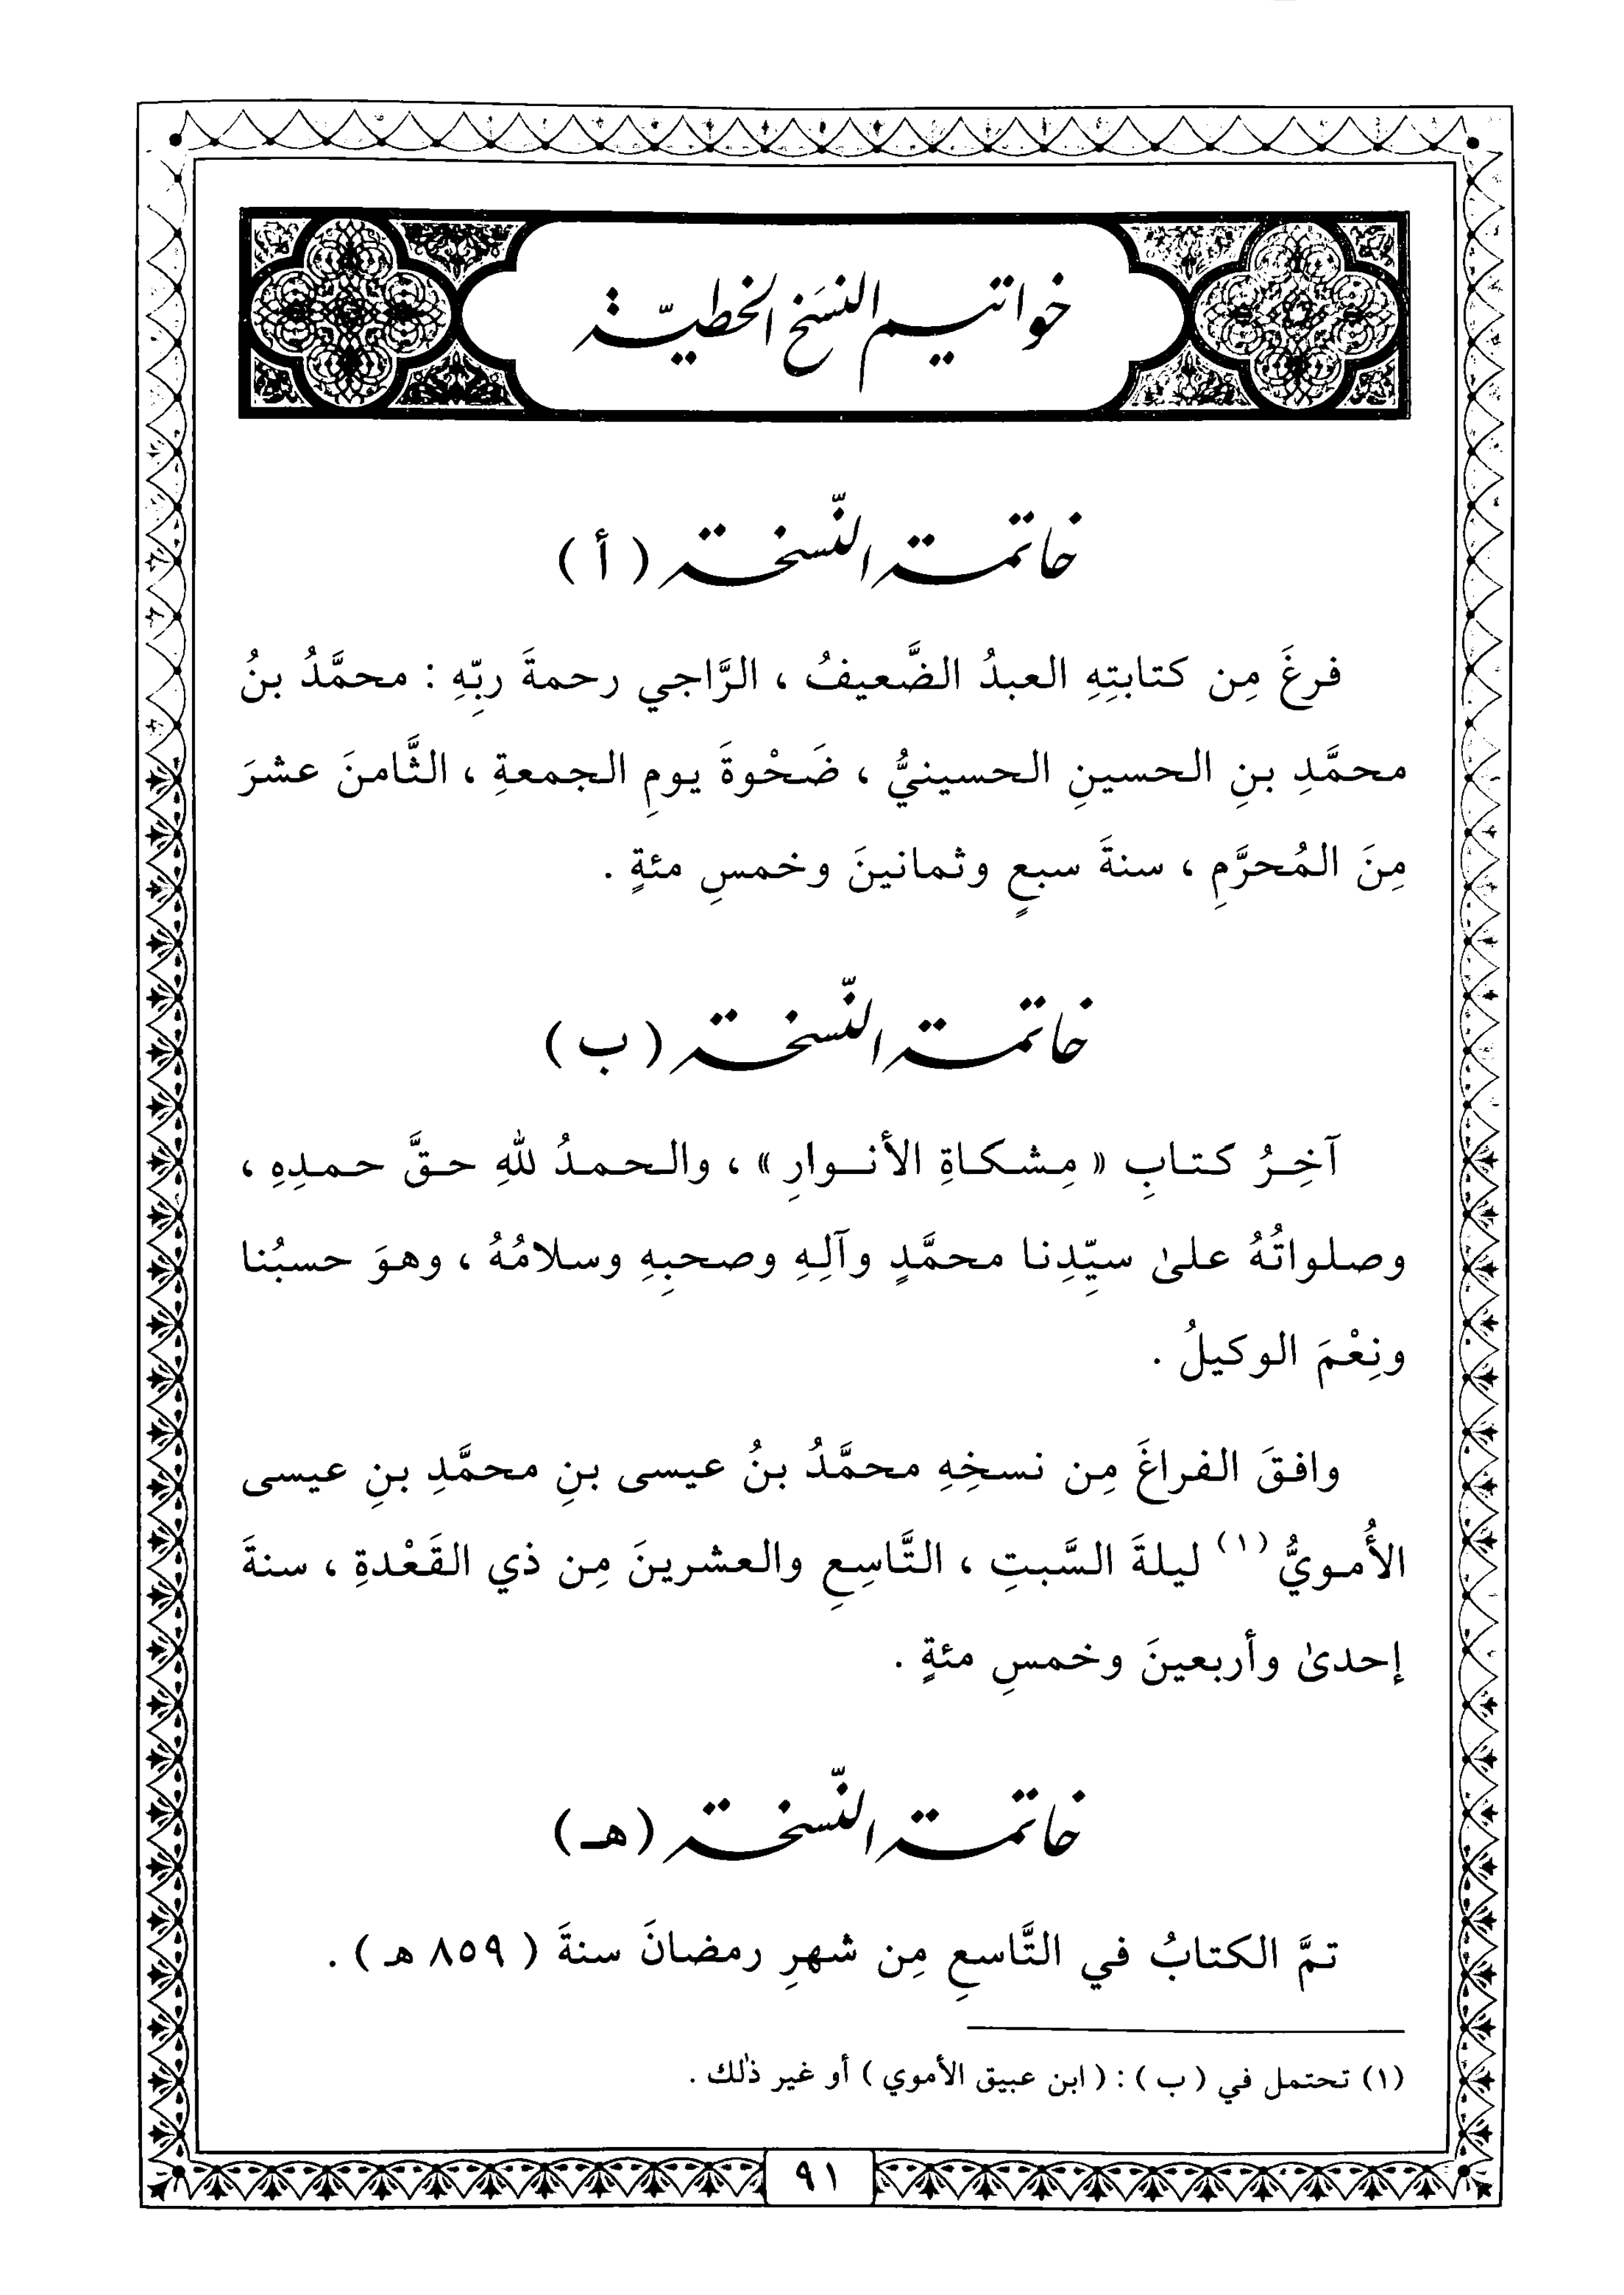 خواتيم النسَخ الخطيّة
خاتمة النّسخة ( أ )
فرغَ مِن كتابتِهِ العبدُ الضَّعيفُ ، الرَّاجي رحمةَ ربِّهِ : محمَّدُ بنُ
محمَّدِ بنِ الحسينِ الحسينيُّ ، ضَحْوةَ يومِ الجمعةِ ، الثَّامنَ عشرَ
مِنَ المُحرَّمِ ، سنةَ سبعٍ وثمانينَ وخمسِ مئةٍ .
خاتمة النّسخة ( ب )
آخِرُ كتابِ « مِشكاةِ الأنوارِ » ، والحمدُ للهِ حقَّ حمدِهِ ،
وصلواتُهُ علىٰ سيِّدِنا محمَّدٍ وآلِهِ وصحبِهِ وسلامُهُ ، وهوَ حسبُنا
ونِعْمَ الوكيلُ .
وافقَ الفراغَ مِن نسخِهِ محمَّدُ بنُ عيسى بنِ محمَّدِ بنِ عيسى
الأُمويُّ (١) ليلةَ السَّبتِ ، التَّاسِعِ والعشرينَ مِن ذي القَعْدةِ ، سنةَ
إحدىٰ وأربعينَ وخمسِ مئةٍ .
خاتمة النّسخة (هـ)
تمَّ الكتابُ في التَّاسعِ مِن شهرِ رمضانَ سنةَ ( ٨٥٩ هـ ) .
(١) تحتمل في ( ب ) : ( ابن عبيق الأموي ) أو غير ذٰلك .
٩١